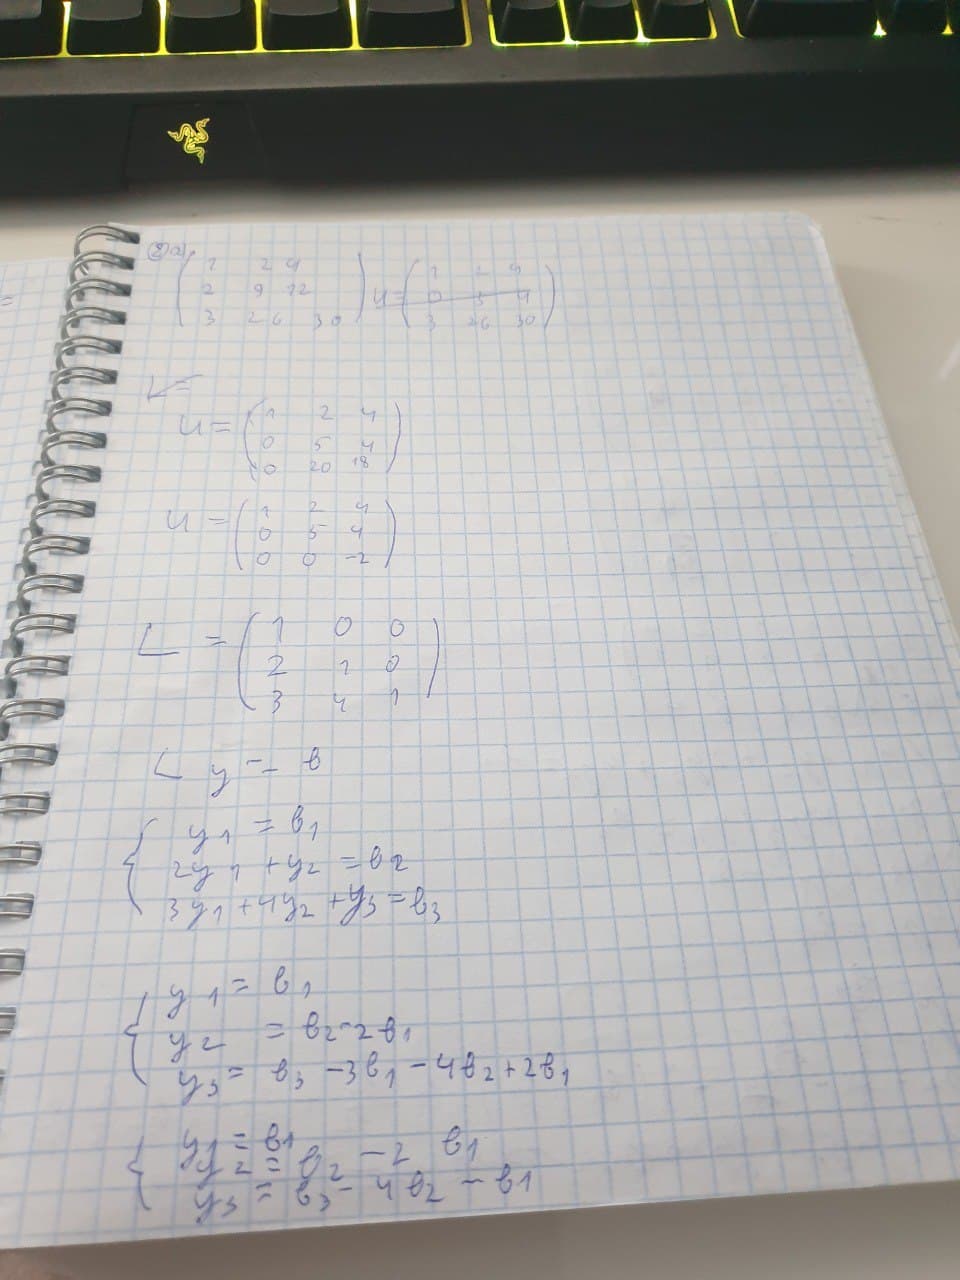 2a) ( 1 2 4 ) U = ( 1 2 4 )
( 2 9 12 ) ( 0 5 4 )
( 3 26 30 ) ( 3 26 30 )
L =
U = ( 1 2 4 )
( 0 5 4 )
( 0 20 18 )
U = ( 1 2 4 )
( 0 5 4 )
( 0 0 -2 )
L = ( 1 0 0 )
( 2 1 0 )
( 3 4 1 )
L y = b
{ y1 = b1
2y1 + y2 = b2
3y1 + 4y2 + y3 = b3
{ y1 = b1
y2 = b2 - 2b1
y3 = b3 - 3b1 - 4b2 + 2b1
{ y1 = b1
y2 = b2 - 2 b1
y3 = b3 - 4b2 - b1